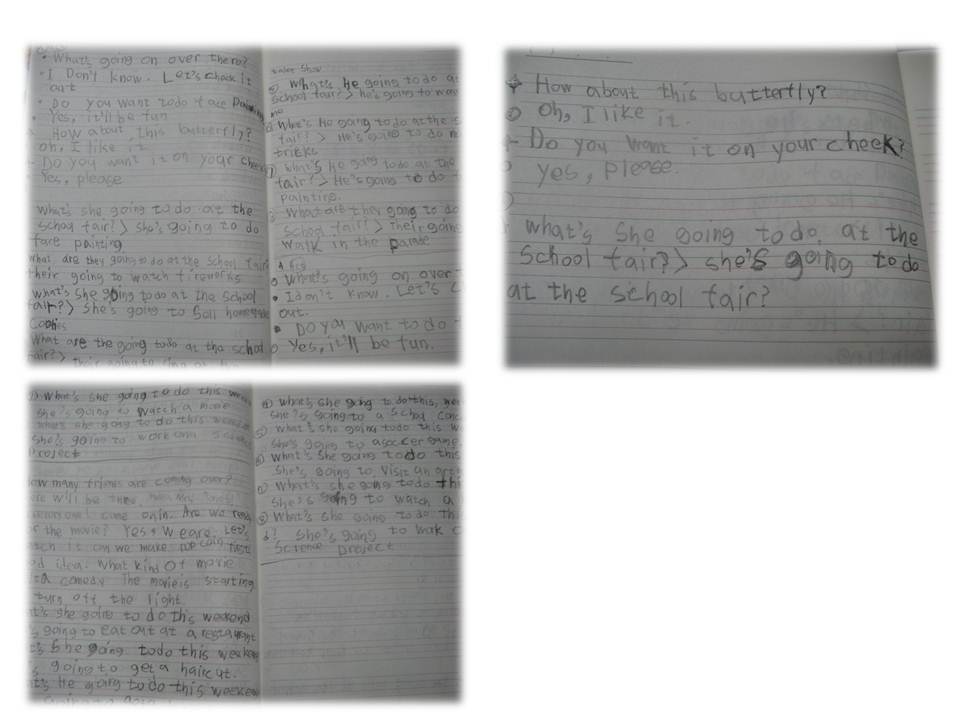 • What's going on over there?
• I Don't know. Let's check it
out
• Do you want todo face Painting
• Yes, it'll be fun
How about, this butterfly?
oh, I like it
- Do you want it on your cheek
Yes, please
What's she going to do at the
school fair?> she's going to do
face painting
what are they going to do at the School fair
their going to watch fireworks
what's she going to do at the School
fair?> She's going to Sall home
Cookies
What are the going todo at tha school
fair?>
Show
What's he going to do at
school fair?> he's going to
What's He going to do at the s
fair?> He's going to do m
tricks
What's He going todo at the
fair?> He's going to do f
painting.
What are they going to do
School fair?> Their going
walk in the Parade
• What's going on over t
• I don't know. Let's c
out.
• Do you want to do f
• Yes, it'll be fun.
How about this butterfly?
Oh, I like it.
- Do you want it on your cheek?
yes, please.
what's She going to do, at the
School fair?> she's going to do
at the school fair?
What's she going to do this week
she's going to watch a movie
what's she going to do this weekend
She's going to work on a science
project
How many friends are coming over?
will be three,
come on in. Are we ready
for the movie? Yes, We are. Let's
it. can we make first
idea. What kind of movie
a comedy. The movie is starting
turn off the light
she going to do this weekend
going to eat out at a restaurant
She going todo this weekend
going to get a haircut.
He going to do this weekend
What's she going to do this, we
She's going to a School conc
what's she going todo this w
she's going to a soccer game
What's she going todo this
She's going to visit an
What's she going to do thi
She's going to watch a
What's she going to do th
She's going to work o
Science project